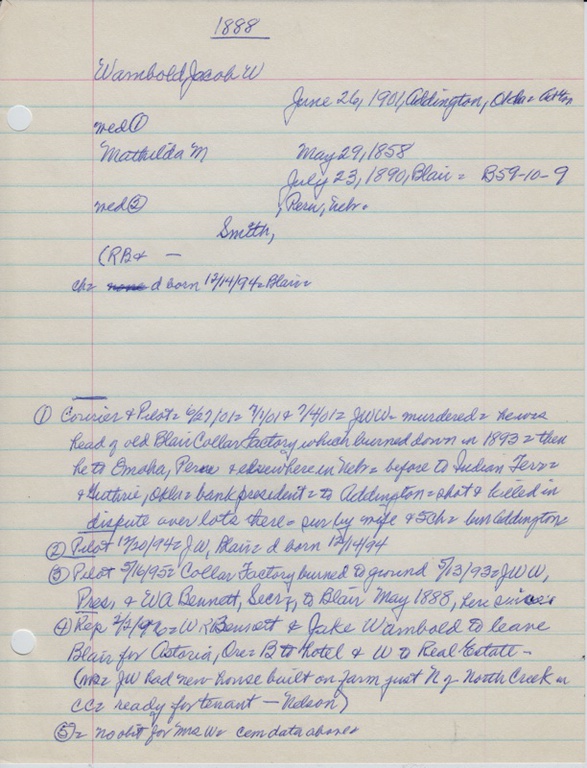 1888
Wambold, Jacob W
June 26, 1901, Addington, Okla =
med ①
Mathilda M May 29, 1858
July 23, 1890, Blair = B59-10-9
med ② , Peru, Nebr.
Smith,
(RB& —
ch= none d born 12/14/94 = Blair =
① Courier & Pilot = 6/27/01 = 7/1/01 & 7/4/01 = JWW = murdered = he was
head of old Blair Collar Factory which burned down in 1893 = then
he to Omaha, Peru & elsewhere in Nebr = before to Indian Terr =
& Guthrie, Okla = bank president = to Addington = shot & killed in
dispute over lots there = sur by wife & 5 ch = bur Addington =
② Pilot 12/20/94 = JW, Blair = d born 12/14/94
③ Pilot 5/16/95 = Collar Factory burned to ground 5/13/93 = JWW,
Pres, & WA Bennett, Secry, to Blair May 1888, here since =
④ Rep = W Bennett & Jake Wambold to leave
Blair for Astoria, Ore = B to hotel & W to Real Estate -
= JW had new house built on farm just N of North Creek in
CC = ready for tenant — Nelson)
⑤ = no obit for Mrs W = cem data above =